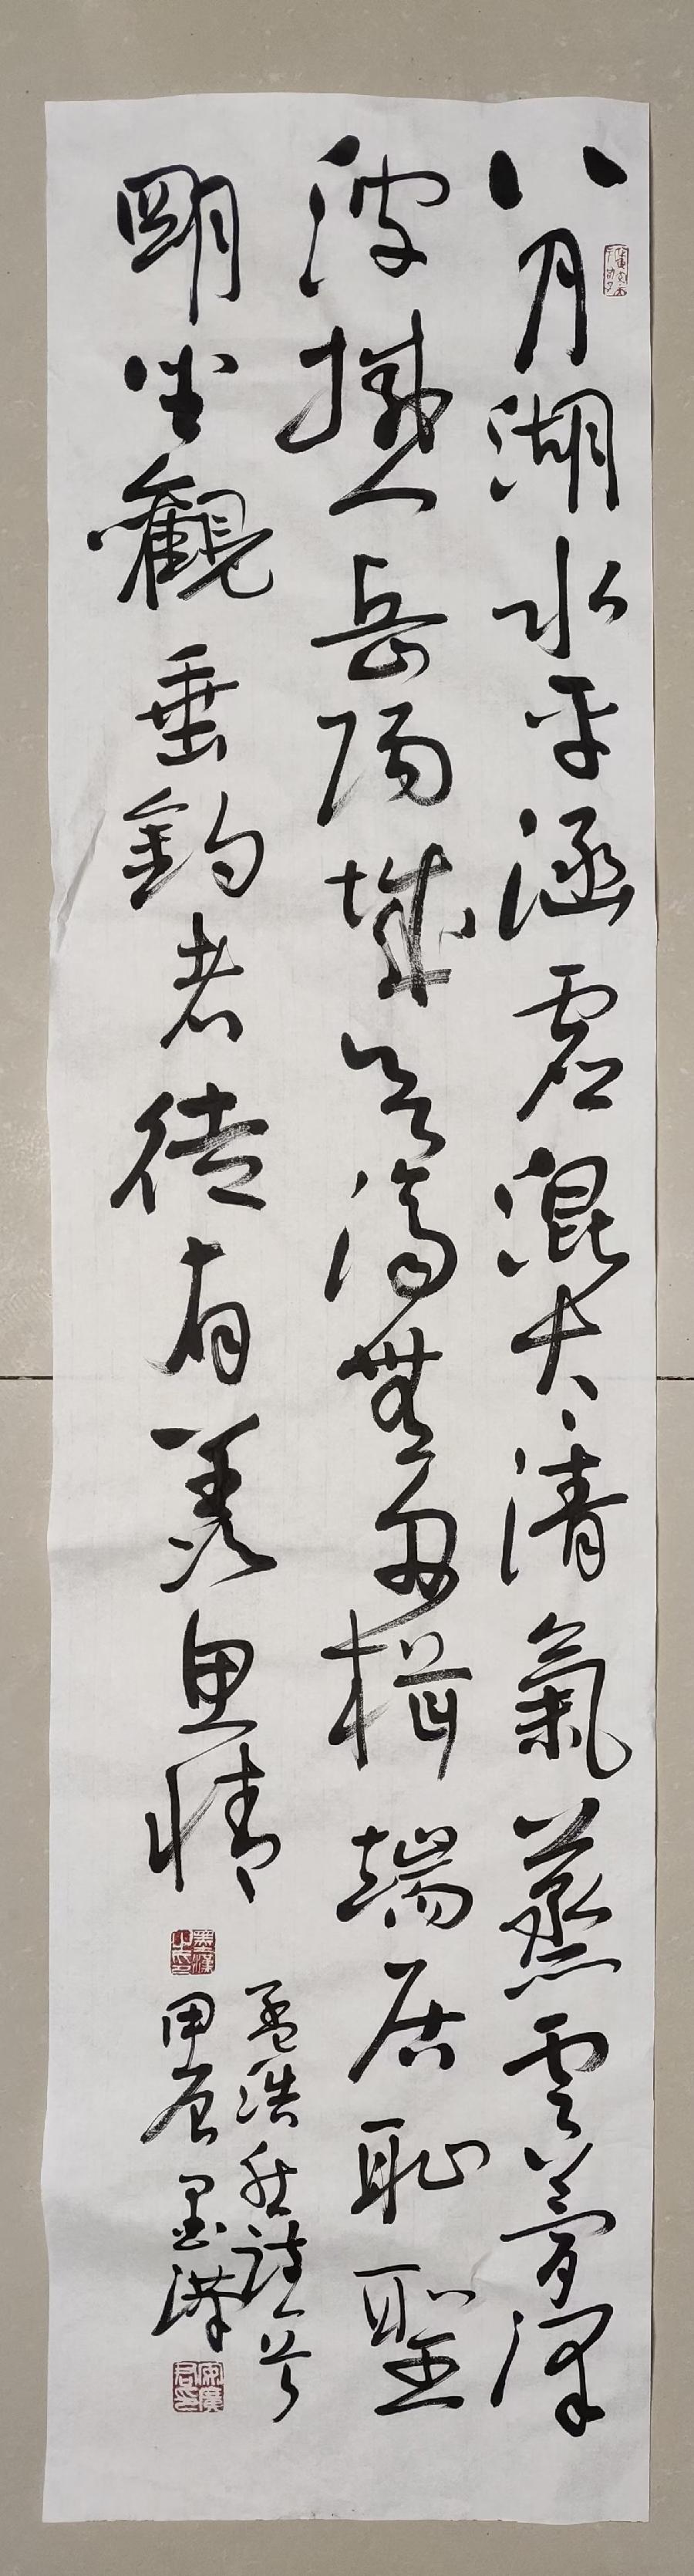 八月湖水平涵虛混太清氣蒸雲夢澤
波撼岳陽城欲濟無舟楫端居恥聖
明坐觀垂釣者徒有羨魚情
孟浩然詩一首
甲辰墨漢